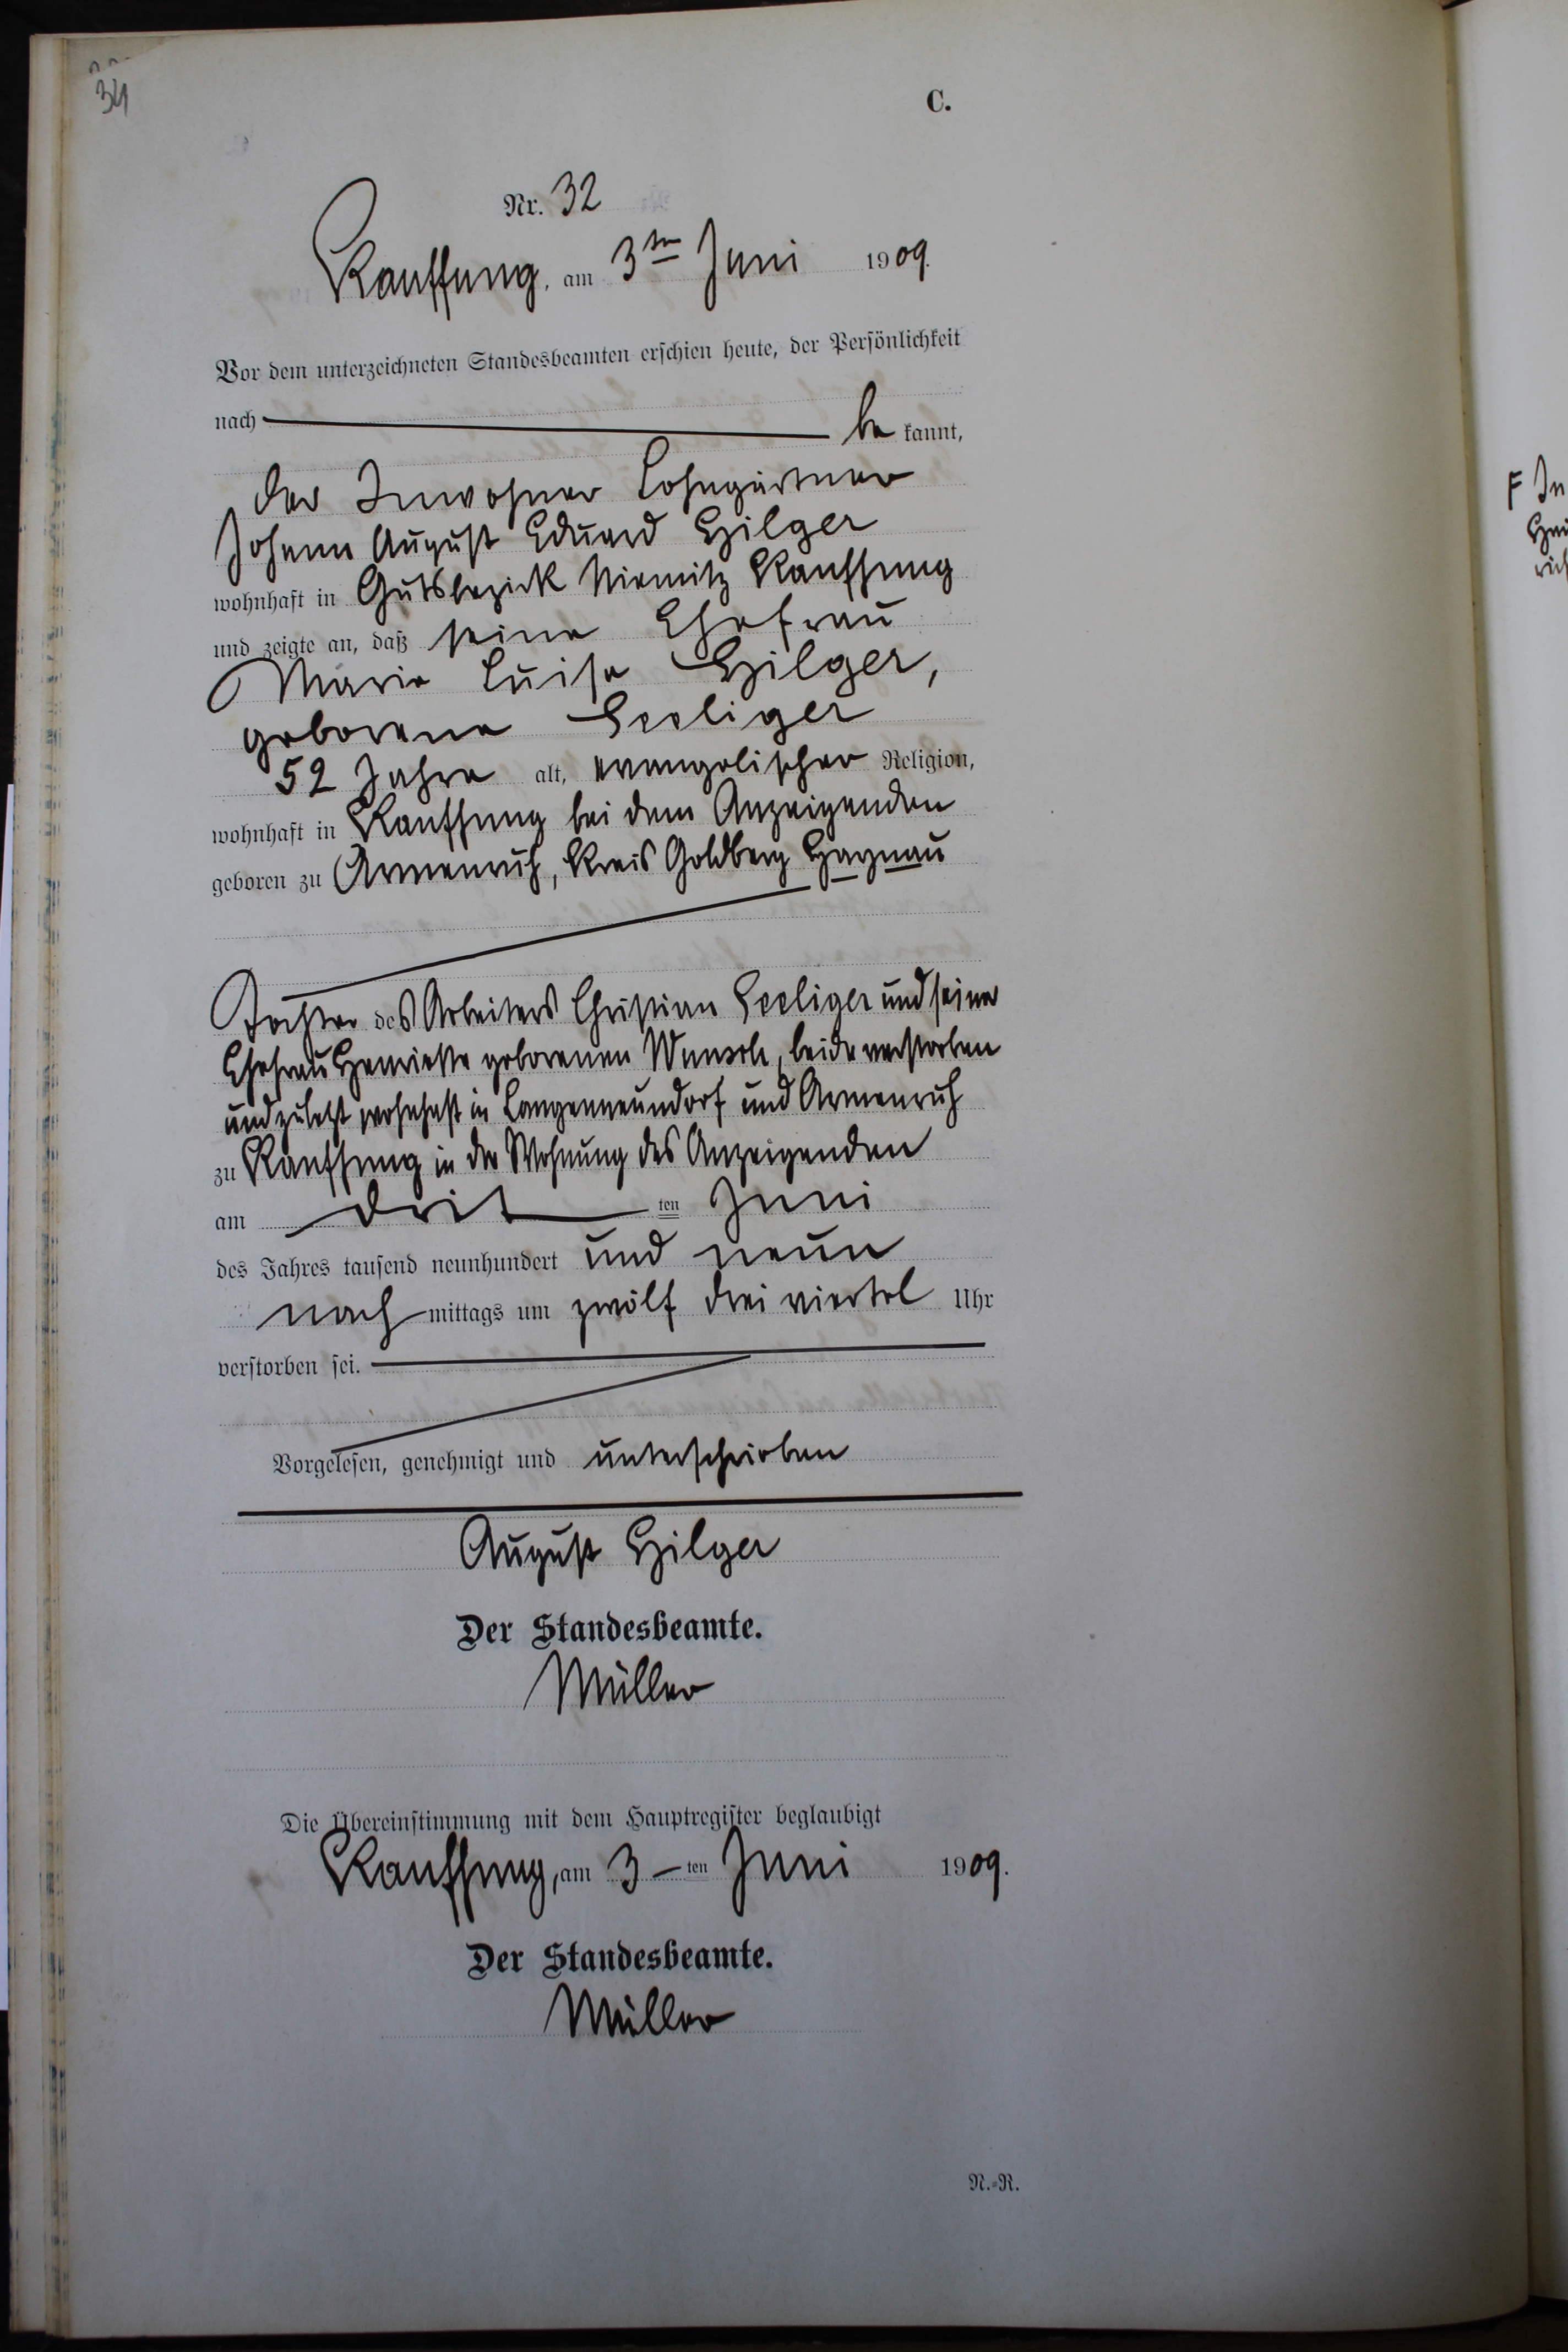 34
C.
Nr. 32
Kauffung, am 3ten Juni 1909.
Vor dem unterzeichneten Standesbeamten erschien heute, der Persönlichkeit
nach be kannt,
der Inwohner Lohngärtner
Johann August Eduard Hilger
wohnhaft in Gutsbezirk Niemitz Kauffung
und zeigte an, daß seine Ehefrau
Marie Luise Hilger,
geborene Seeliger
52 Jahre alt, evangelischer Religion,
wohnhaft in Kauffung bei dem Anzeigenden
geboren zu Armenruh, Kreis Goldberg Haynau
Tochter des Arbeiters Christian Seeliger und seiner
Ehefrau Henriette geborenen beide verstorben
und zuletzt wohnhaft in Langenneundorf und Armenruh
zu Kauffung in der Wohnung des Anzeigenden
am drit ten Juni
des Jahres tausend neunhundert und neun
nach mittags um zwölf drei viertel Uhr
verstorben sei.
Vorgelesen, genehmigt und unterschrieben
August Hilger
Der Standesbeamte.
Müller
Die Übereinstimmung mit dem Hauptregister beglaubigt
Kauffung, am 3 ten Juni 1909.
Der Standesbeamte.
Müller
N.=R.